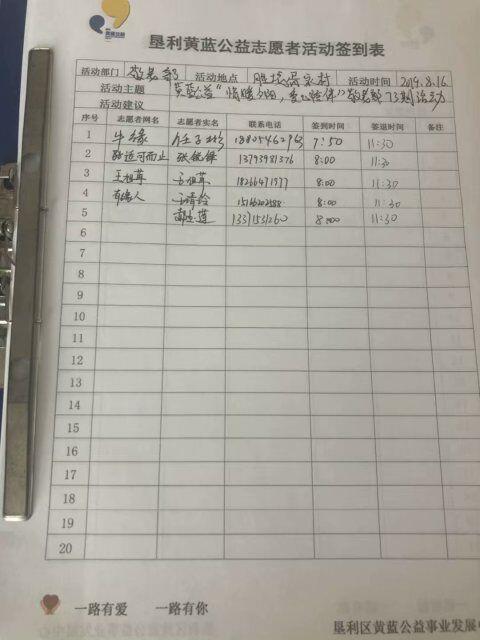 黄蓝公益
垦利黄蓝公益志愿者活动签到表
活动部门 敬老部 活动地点 胜坨 村 活动时间 2019.8.16
活动主题 黄蓝公益“情暖夕阳，爱心陪伴”敬老部73期活动
活动建议
序号 志愿者网名 志愿者实名 联系电话 签到时间 签退时间 备注
1 牛缘 18805462963 7:50 11:30
2 适可而止 张 13793981376 8:00 11:30
3 王祖茸 王祖茸 18266471977 8:00 11:30
4 有缘人 王 15166202588 8:00 11:30
5 莲 13371531260 8:00 11:30
6
7
8
9
10
11
12
13
14
15
16
17
18
19
20
一路有爱 一路有你
垦利区黄蓝公益事业发展